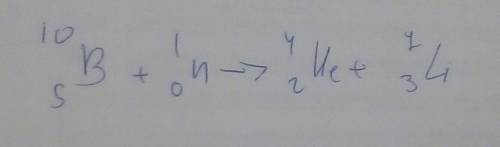 ¹⁰₅B + ¹₀n -> ⁴₂He + ⁷₃Li